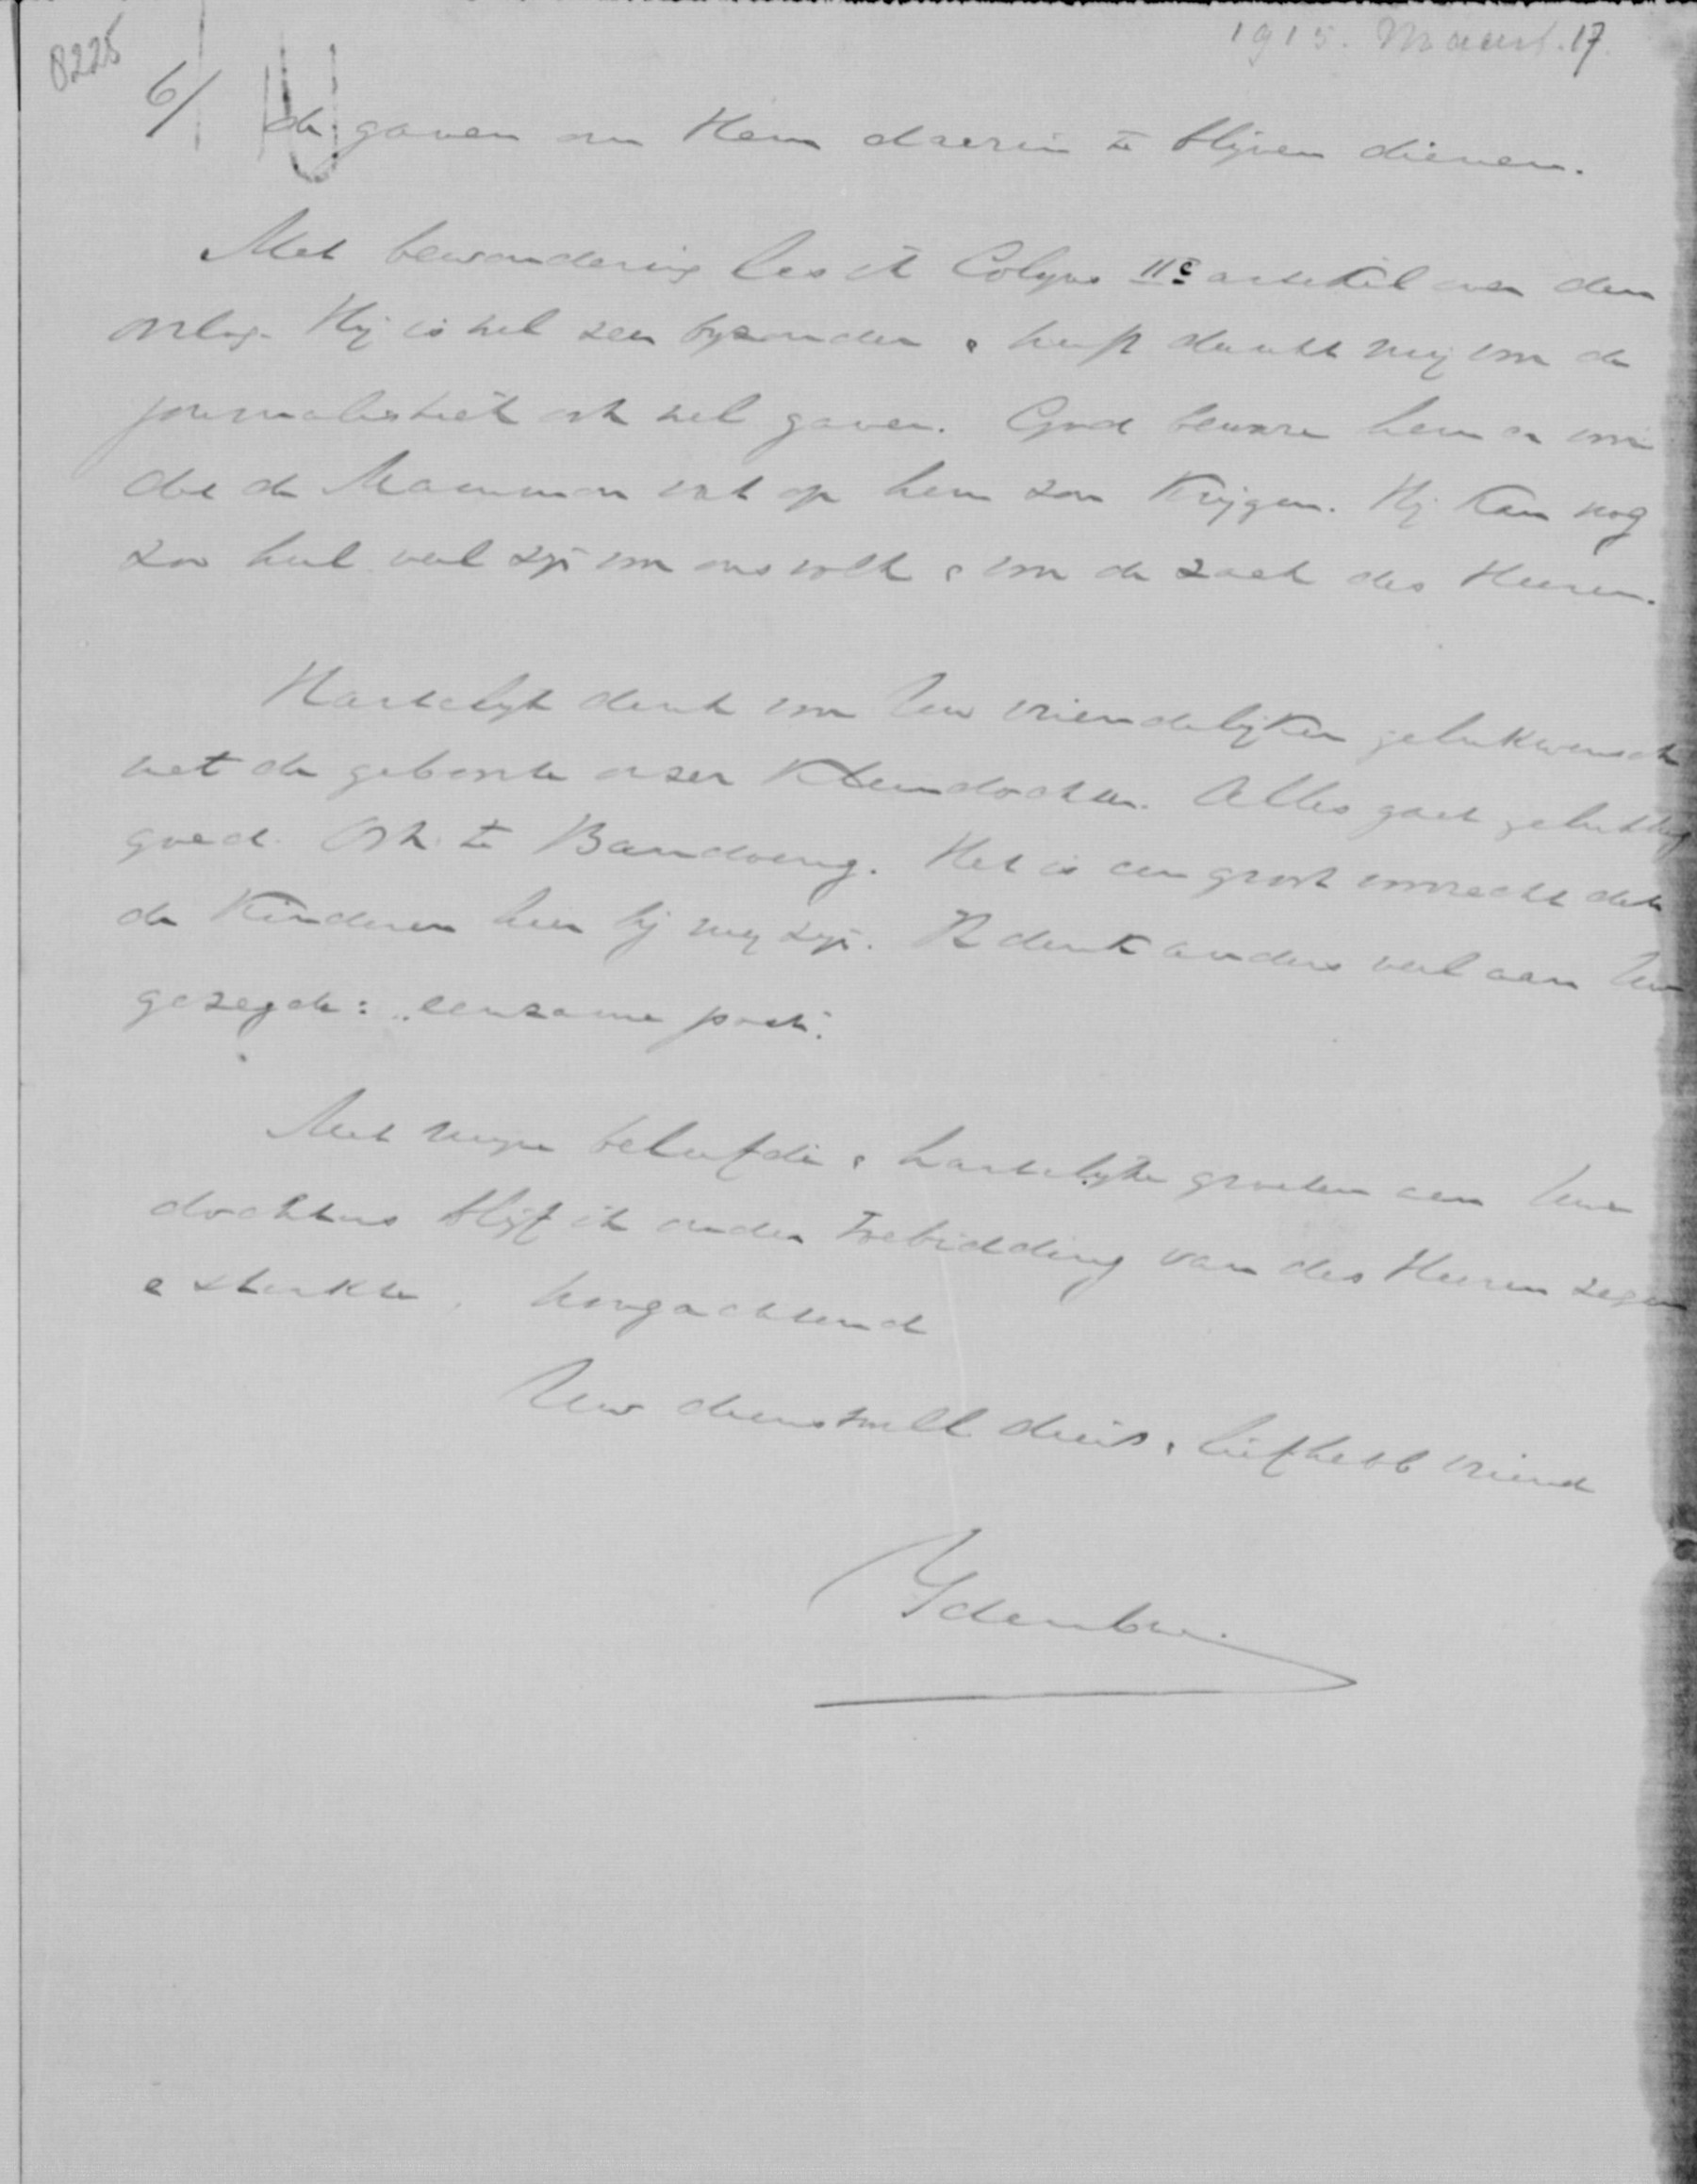 8225
1915. Maart. 17.
6/
de gaven om Hem daarin te blijven dienen.
Met bewondering las ik Colijns IIe artikel over den
oorlog. Hij is wel zeer byzonder & heeft dunkt mij voor de
journalistiek ook wel gaven. God beware hem er voor
dat de Mammon vat op hem zou krijgen. Hij kan nog
zoo heel veel zijn voor ons volk & voor de zaak des Heeren.
Hartelijk dank voor Uw vriendelijken gelukwensch
met de geboorte onzer kleindochter. Alles gaat gelukkig
goed. Ook te Bandoeng. Het is een groot voorrecht dat
de kinderen hier bij mij zijn. Ik denk anders veel aan Uw
gezegde: "eenzame post".
Met mijne beleefde & hartelijke groeten aan Uwe
dochters blijf ik onder toebidding van des Heeren zegen
& sterkte, hoogachtend
Uw dienstwill dien. & liefhebb vriend
Idenburg